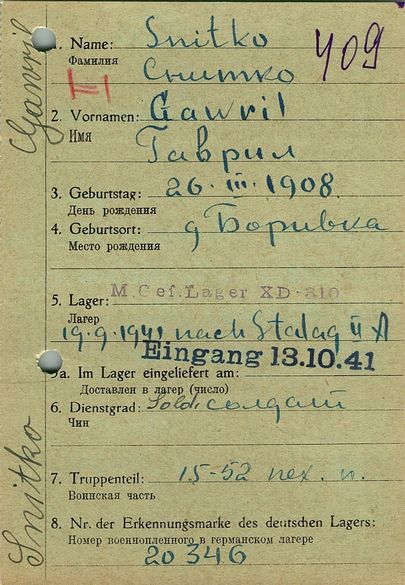 Gawril
Snitko
409
1. Name: Snitko
Фамилия Снитко
2. Vornamen: Gawril
Имя Гаврил
3. Geburtstag: 26. III. 1908.
День рождения
4. Geburtsort: д Боривка
Место рождения
5. Lager: M. Gef. Lager XD-310
Лагерь
19.9.1941 nach Stalag II A
Eingang 13.10.41
5a. Im Lager eingeliefert am:
Доставлен в лагерь (число)
6. Dienstgrad: Sold. солдат
Чин
7. Truppenteil: 15-52 пех. п.
Воинская часть
8. Nr. der Erkennungsmarke des deutschen Lagers:
Номер военнопленного в германском лагере
20346